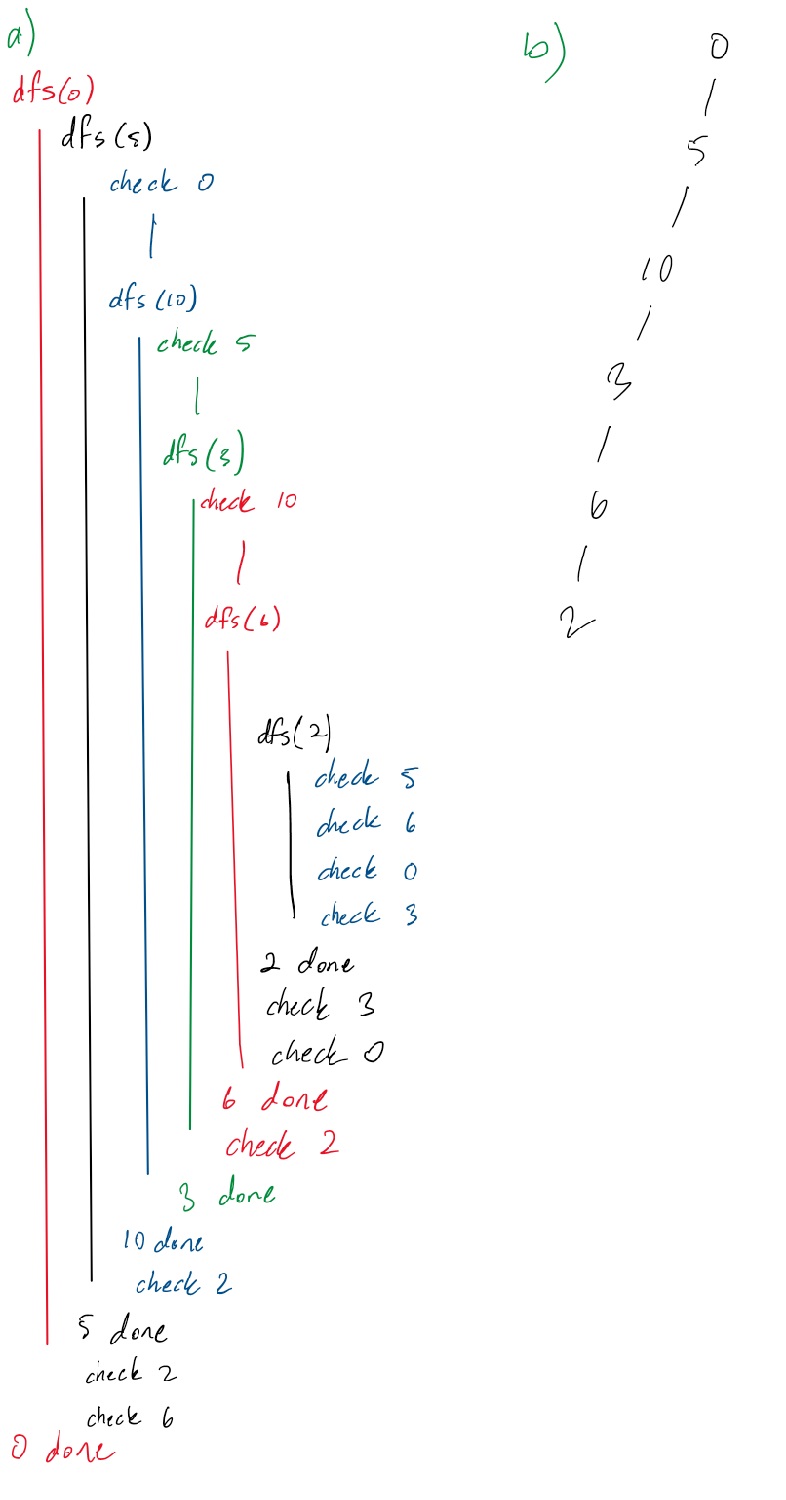 a)
dfs(0)
dfs(5)
check 0
dfs(10)
check 5
dfs(3)
check 10
dfs(6)
dfs(2)
check 5
check 6
check 0
check 3
2 done
check 3
check 0
6 done
check 2
3 done
10 done
check 2
5 done
check 2
check 6
0 done
b)
0
5
10
3
6
2